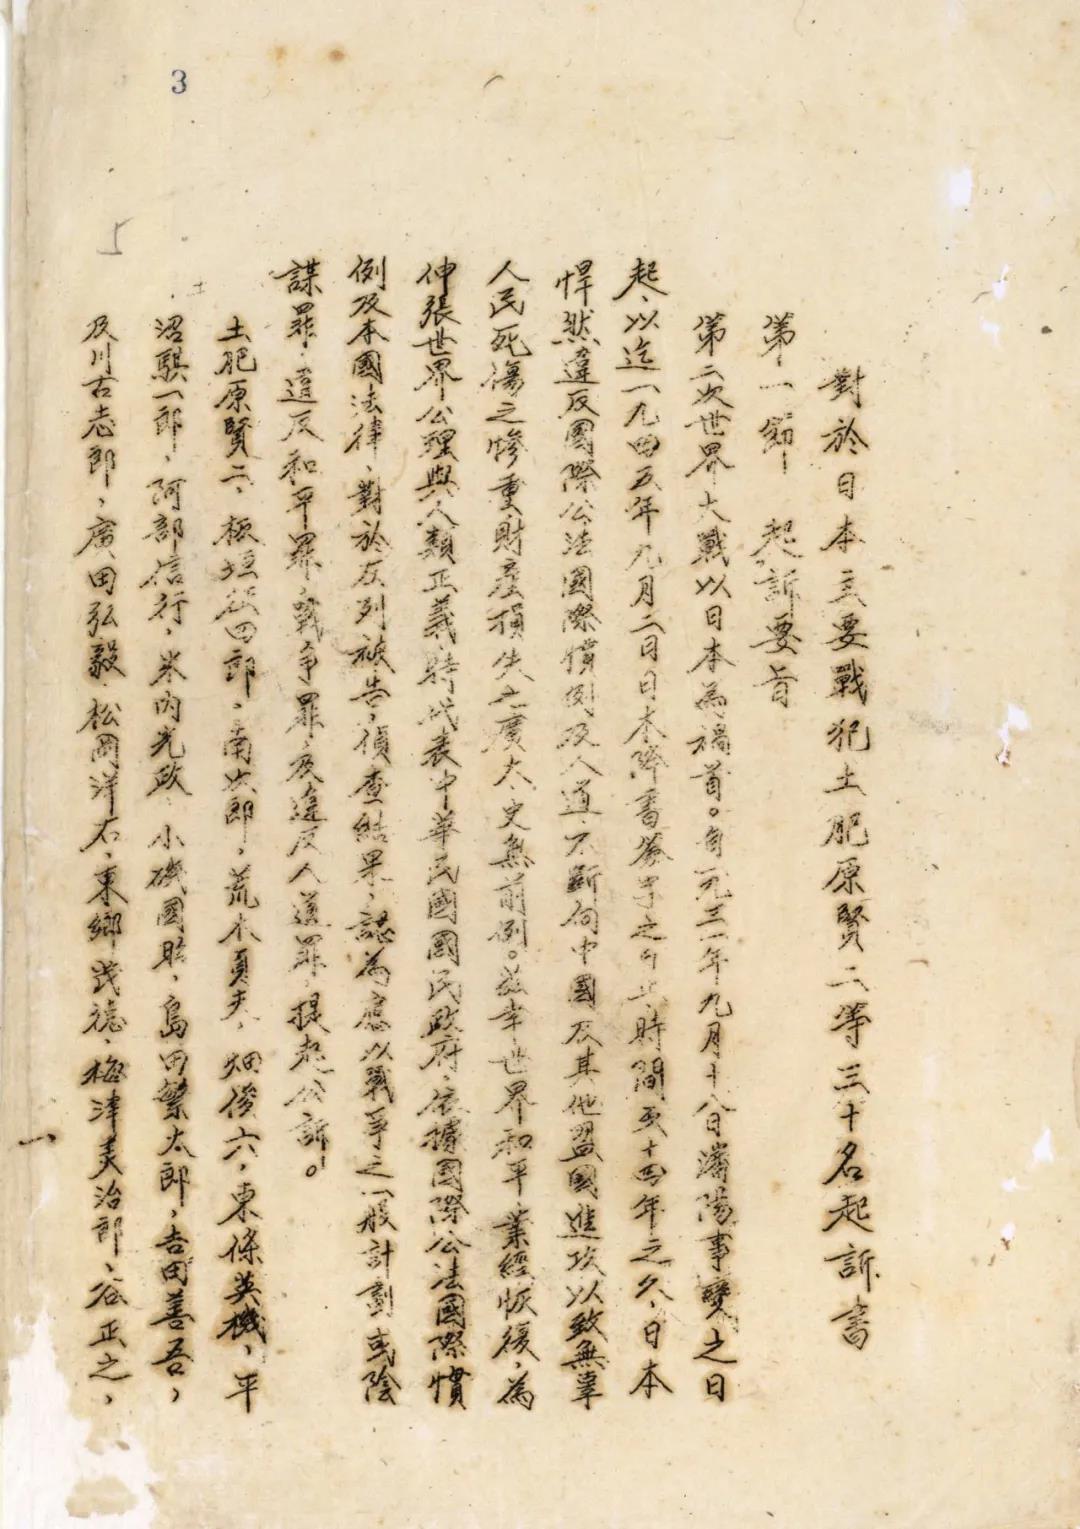 3
5
對於日本主要戰犯土肥原賢二等三十名起訴書
第一節 起訴要旨
第二次世界大戰以日本為禍首。自一九三一年九月十八日瀋陽事變之日
起、以迄一九四五年九月二日日本降書簽字之日止、時間至十四年之久、日本
悍然違反國際公法國際慣例及人道、不斷向中國及其他盟國進攻以致無辜
人民死傷之慘重、財產損失之廣大、史無前例。茲幸世界和平、業經恢復、為
伸張世界公理與人類正義、特代表中華民國國民政府、依據國際公法國際慣
例及本國法律、對於左列被告、偵查結果、認為應以戰爭之一般計劃或陰
謀罪、違反和平罪、戰爭罪、及違反人道罪、提起公訴。
土肥原賢二、板垣征四郎、南次郎、荒木貞夫、畑俊六、東條英機、平
沼騏一郎、阿部信行、米內光政、小磯國昭、島田繁太郎、吉田善吾、
及川古志郎、廣田弘毅、松岡洋右、東鄉茂德、梅津美治郎、谷正之、
一